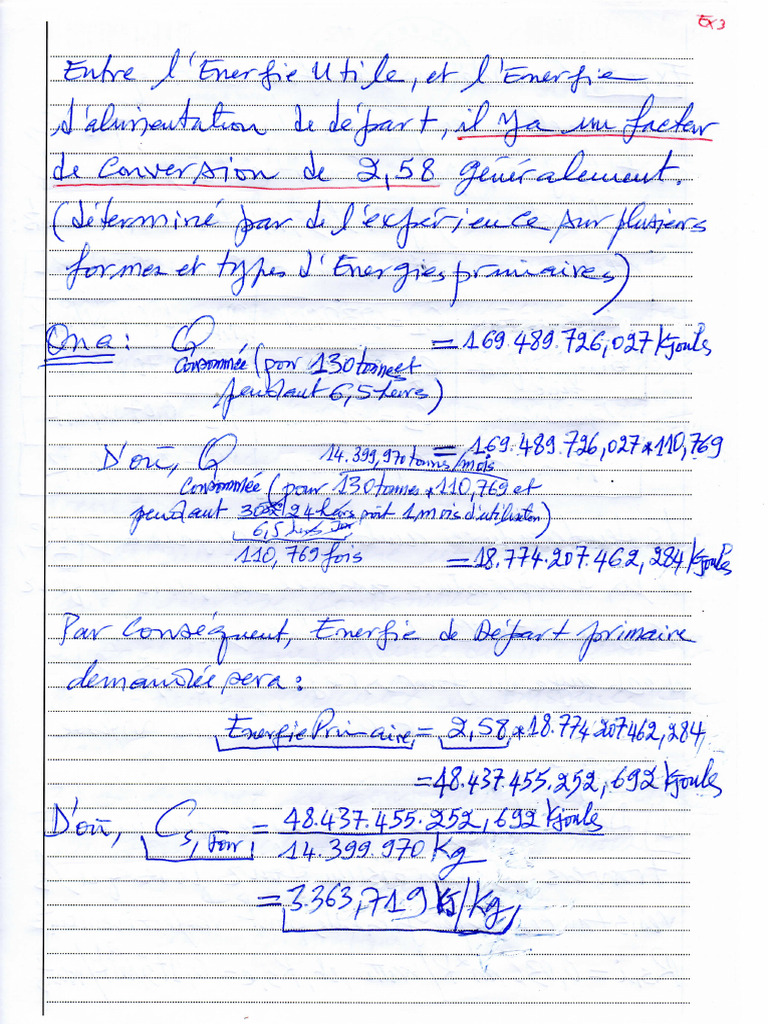 Ex3
Entre l'Energie Utile, et l'Energie
d'alimentation de départ, il ya un facteur
de conversion de 2,58 généralement.
(déterminé par de l'expérience sur plusiers
formes et types d'Energies primaires)
On a: Q = 169.489.726,027 Kjoules
Consommée (pour 130 tonnes et
pendant 6,5 heurs)
D'où, Q 14.399,970 tonnes/mois = 169.489.726,027*110,769
Consommée (pour 130 tonnes*110,769 et
pendant 30x24 heurs pour 1 mois d'utilisation)
6,5 heurs
110,769 fois = 18.774.207.462,284 Kjoules
Par Conséquent, Energie de Départ primaire
demandée sera:
Energie Primaire = 2,58*18.774207462,284
=48.437.455.252,692 Kjoules
D'où, Cs, Four = 48.437.455.252,692 Kjoules
14.399.970 Kg
= 3.363,719 KJ/Kg,